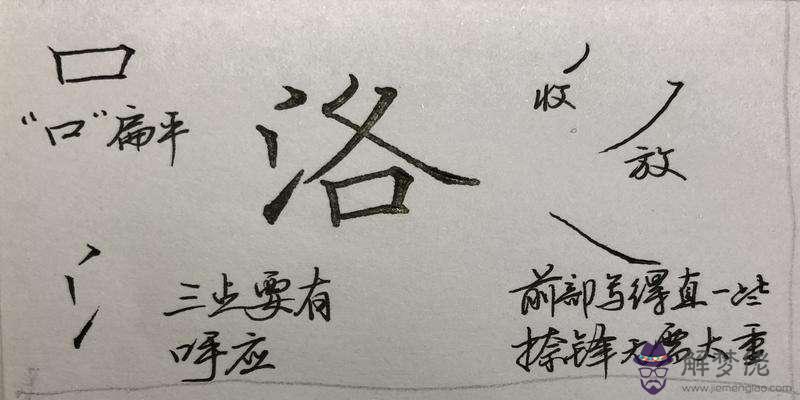 口
"口"扁平
洛
收
放
三点要有
呼应
前部写得直一些
捺锋无需太重
解梦佬
www.jiemenglao.com